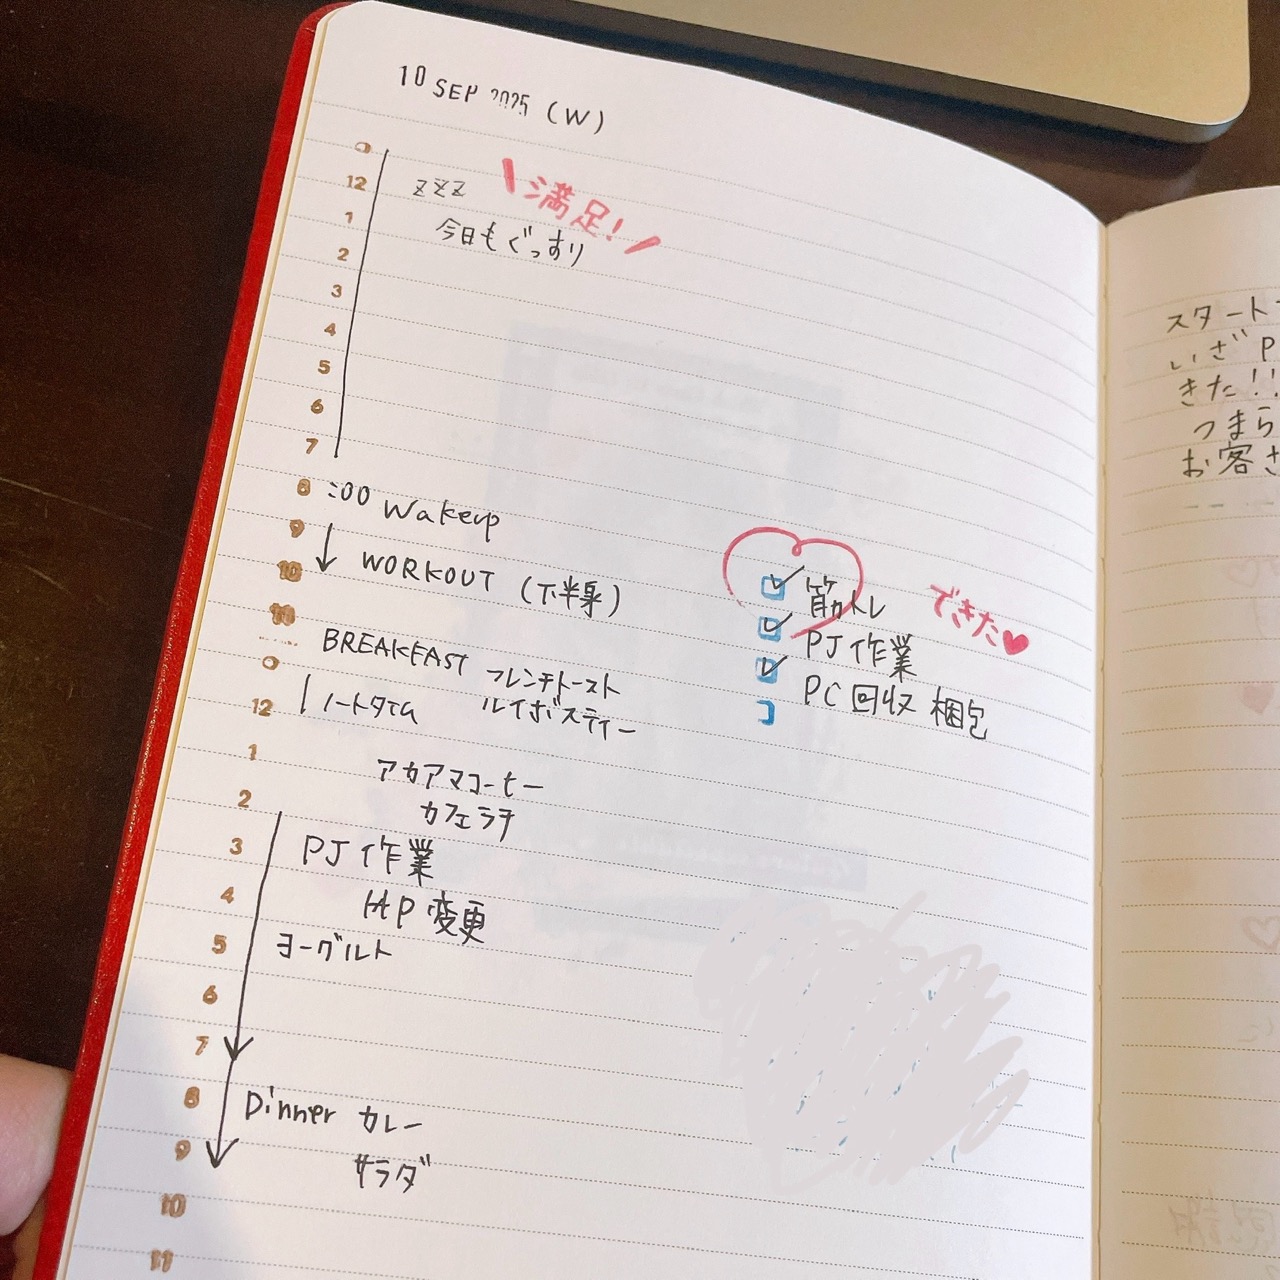 10 SEP 2025 (W)
12 zzz \満足!/
1 今日もぐっすり
2
3
4
5
6
7
8 :00 Wakeup
9
10 WORKOUT (下半身)
11
BREAKFAST フレンチトースト
ルイボスティー
12 ノートタイム
1 アカアマコーヒー
2 カフェラテ
3 PJ作業
4 HP変更
5 ヨーグルト
6
7
8 Dinner カレー
9 サラダ
10
11
筋トレ できた♥
PJ作業
PC回収 梱包
スタート
いざ P
きた!!
つまら
お客さ